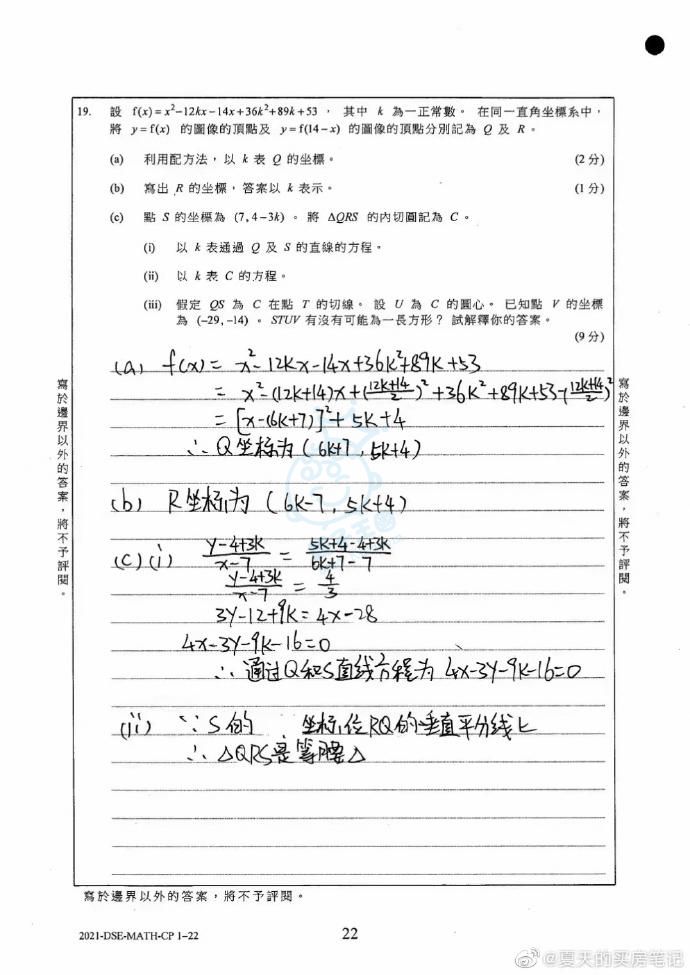 19. 設 f(x)=x²−12kx−14x+36k²+89k+53 ， 其中 k 為一正常數。 在同一直角坐標系中，
將 y=f(x) 的圖像的頂點及 y=f(14−x) 的圖像的頂點分別記為 Q 及 R 。
(a) 利用配方法，以 k 表 Q 的坐標。 (2 分)
(b) 寫出 R 的坐標，答案以 k 表示。 (1 分)
(c) 點 S 的坐標為 (7, 4−3k) 。 將 ΔQRS 的內切圓記為 C 。
(i) 以 k 表通過 Q 及 S 的直線的方程。
(ii) 以 k 表 C 的方程。
(iii) 假定 QS 為 C 在點 T 的切線。 設 U 為 C 的圓心。 已知點 V 的坐標
為 (−29, −14) 。 STUV 有沒有可能為一長方形？ 試解釋你的答案。
(9 分)
(a) f(x) = x²−12Kx−14x+36K²+89K+53
= x²−(12K+14)x+(12K+14/2)²+36K²+89K+53−(12K+14/2)²
= [x−(6K+7)]²+5K+4
∴ Q坐标为 (6K+7, 5K+4)
(b) R坐标为 (6K−7, 5K+4)
(c) (i) y−4+3K/x−7 = 5K+4−4+3K/6K+7−7
y−4+3K/x−7 = 4/3
3y−12+9K=4x−28
4x−3y−9K−16=0
∴ 通过Q和S直线方程为 4x−3y−9K−16=0
(ii) ∵ S的 坐标位RQ的垂直平分线上
∴ △QRS是等腰△
寫於邊界以外的答案，將不予評閱。
寫於邊界以外的答案，將不予評閱。
寫於邊界以外的答案，將不予評閱。
2021-DSE-MATH-CP 1−22
22
@夏天的买房笔记